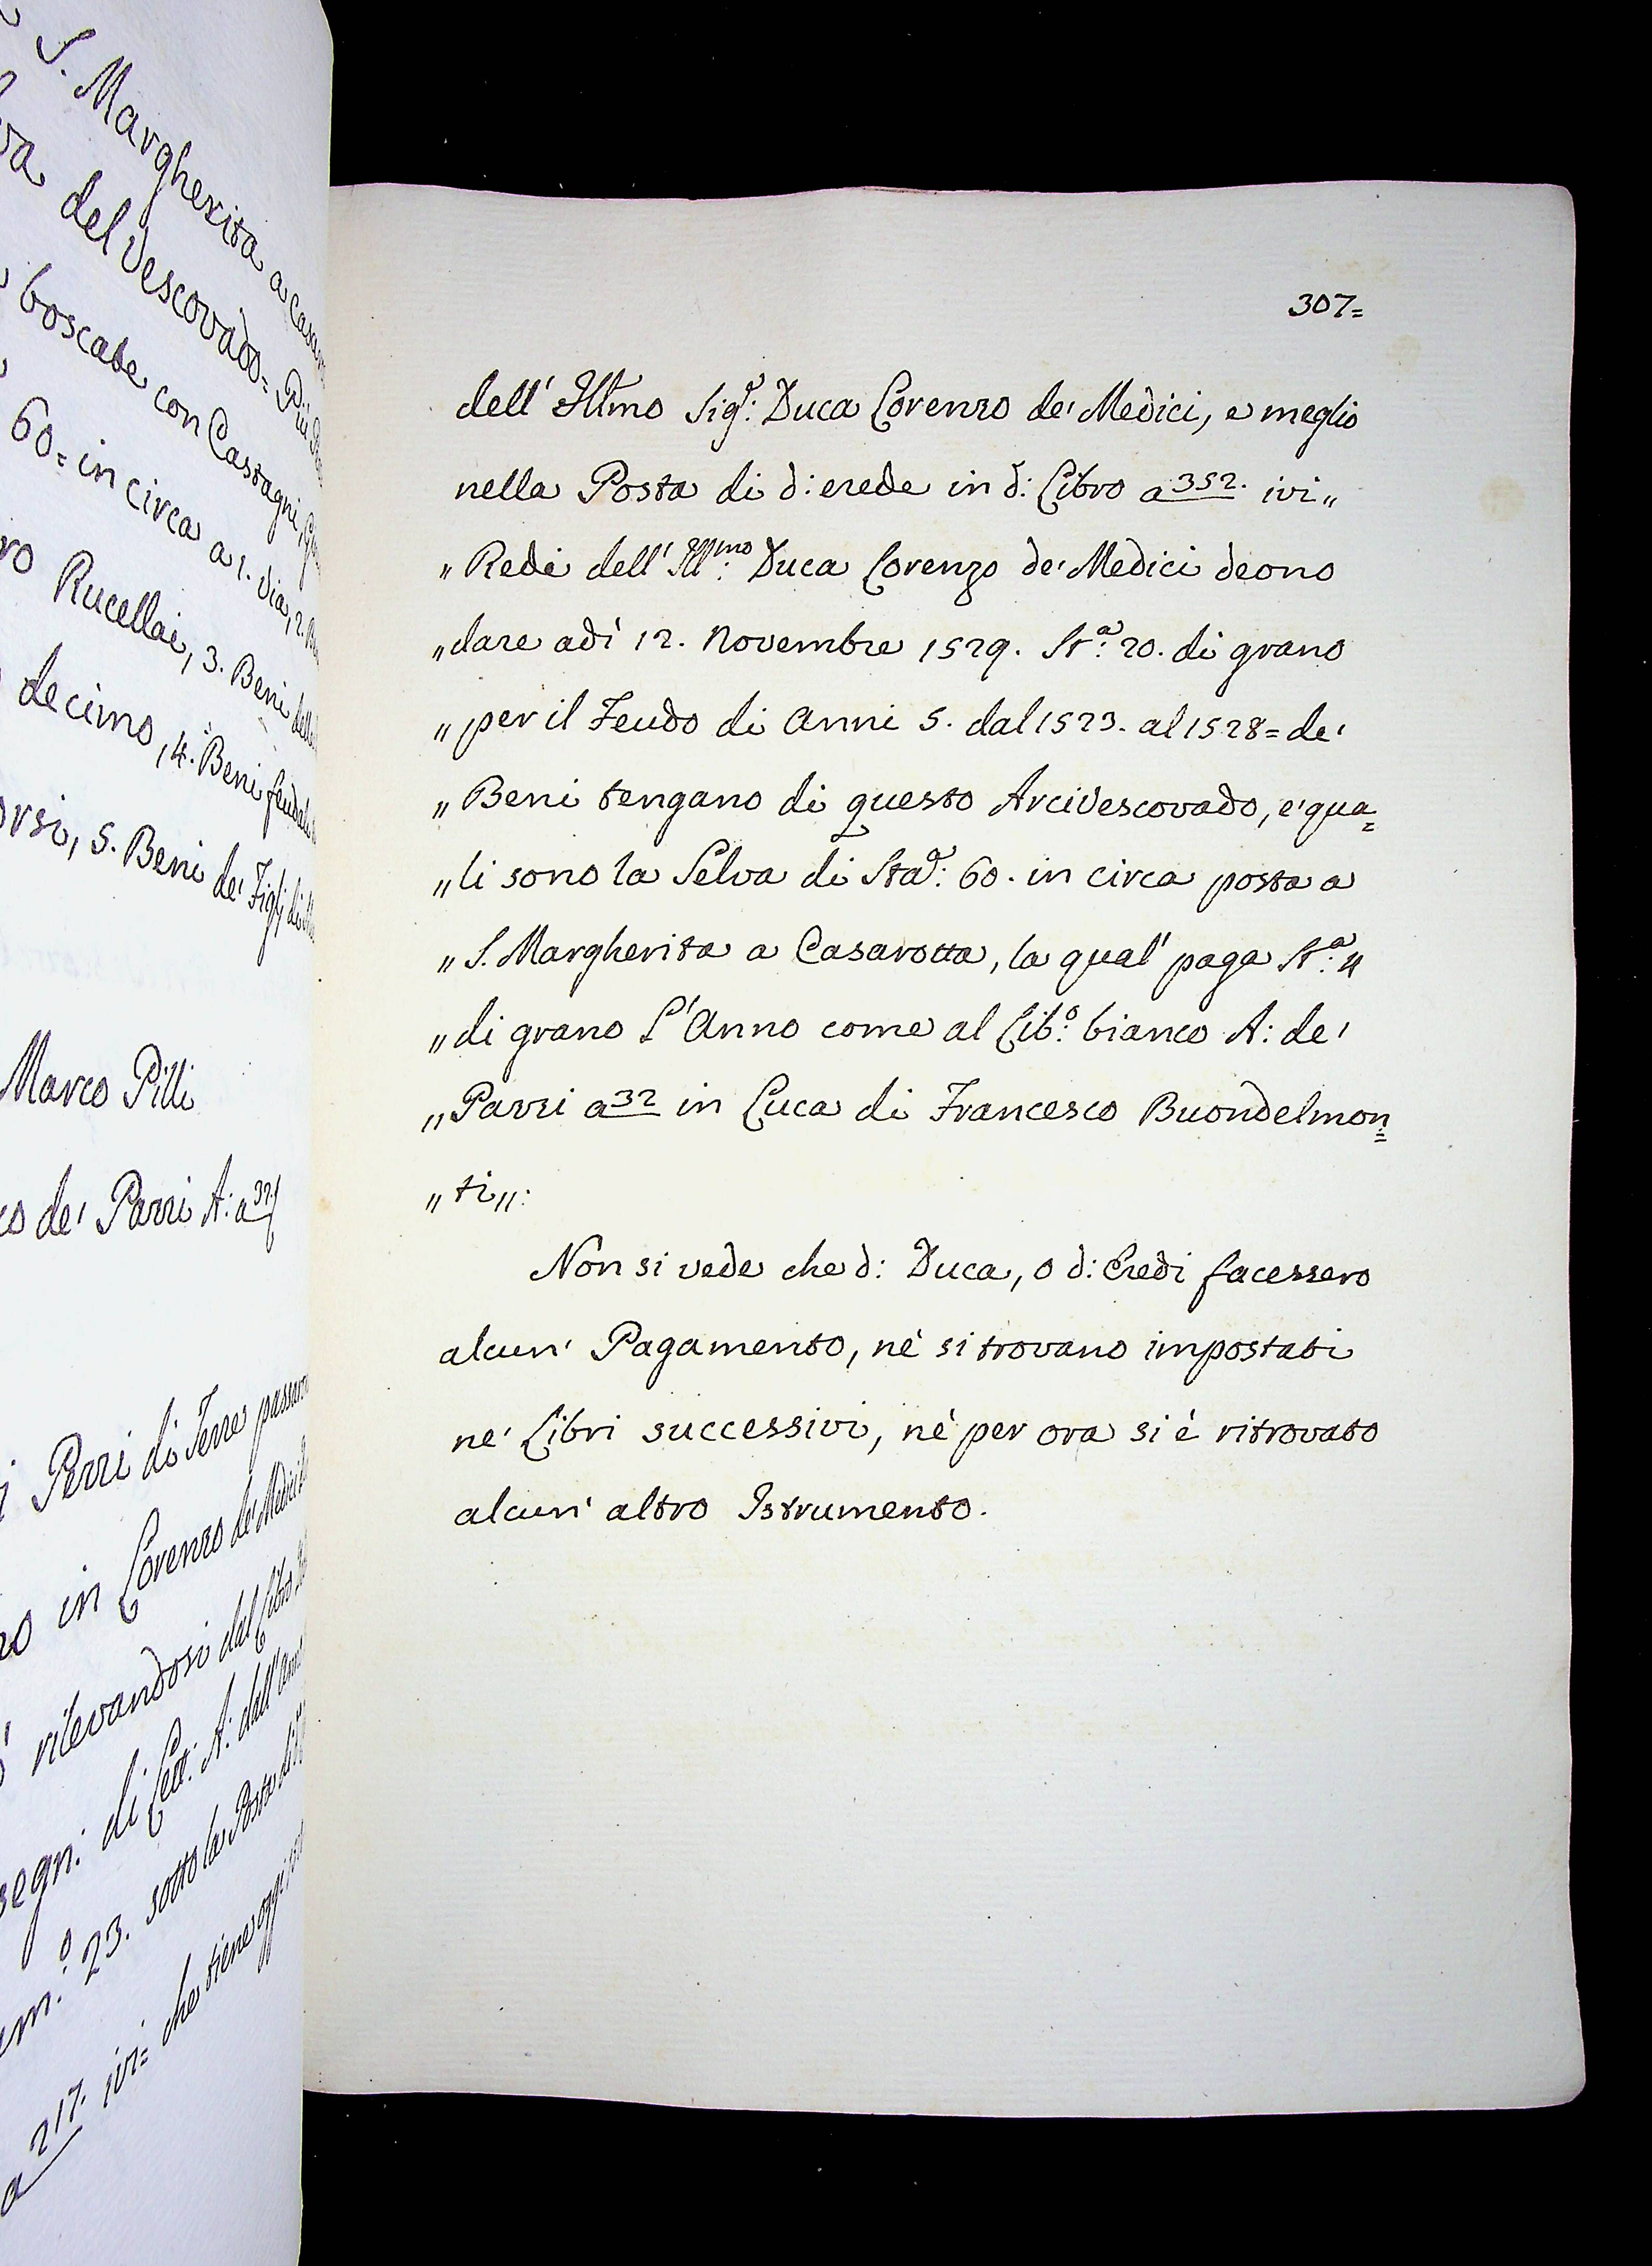 S. Margherita a
del Vescovado= Più
boscate con Castagni,
60= in circa a 1. via, 2.
Rucellai, 3. Beni
decimo, 4. Beni
5. Beni de' Figli
Marco Pilli
de' Pazzi A: a 32
Pezzi di Terre
in Lorenzo de' Medici
rilevandosi dal Libro
segn: di Lett: A: dall'
23. sotto la Posta
a 217. ivi= che tiene oggi
307=
dell' Ill:mo Sig:r Duca Lorenzo de' Medici, e meglio
nella Posta di d: erede in d: Libro a 352. ivi„
„ Redi dell' Ill:mo Duca Lorenzo de' Medici deono
„ dare adì 12. Novembre 1529. St:a 20. di grano
„ per il Feudo di Anni 5. dal 1523. al 1528= de'
„ Beni tengano di questo Arcivescovado, e' qua=
„ li sono la Selva di Sta:a 60. in circa posta a
„ S. Margherita a Casarotta, la qual' paga St:a 4
„ di grano l'Anno come al Lib:o bianco A: de'
„ Pazzi a 32 in Luca di Francesco Buondelmon=
„ ti„:
Non si vede che d: Duca, o d: Eredi facessero
alcun' Pagamento, nè si trovano impostati
ne' Libri successivi, nè per ora si è ritrovato
alcun' altro Istrumento.